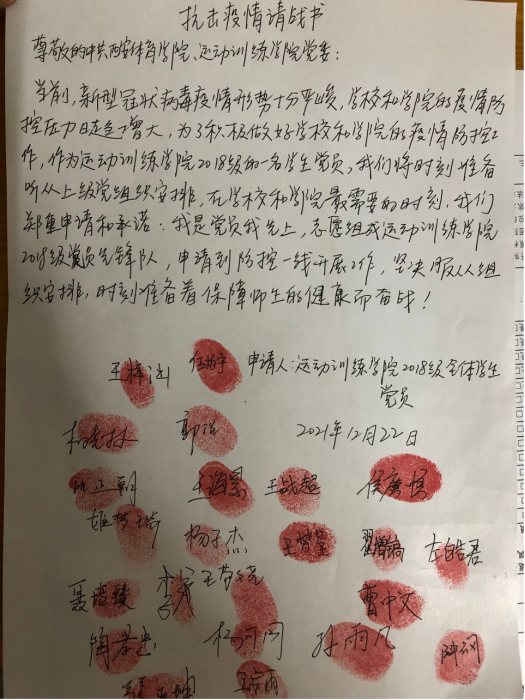 抗击疫情请战书
尊敬的中共西安体育学院、运动训练学院党委：
当前，新型冠状病毒疫情形势十分严峻，学校和学院的疫情防
控压力日趋增大，为了积极做好学校和学院的疫情防控工
作，作为运动训练学院2018级的一名学生党员，我们将时刻准备
听从上级党组织安排，在学校和学院最需要的时刻，我们
郑重申请和承诺：我是党员我先上，志愿组成运动训练学院
2018级党员先锋队，申请到防控一线开展工作，坚决服从组
织安排，时刻准备着保障师生的健康而奋战！
申请人：运动训练学院2018级全体学生
党员
2021年12月22日
王海景 王战超
杨子杰
左皓君
曹中文